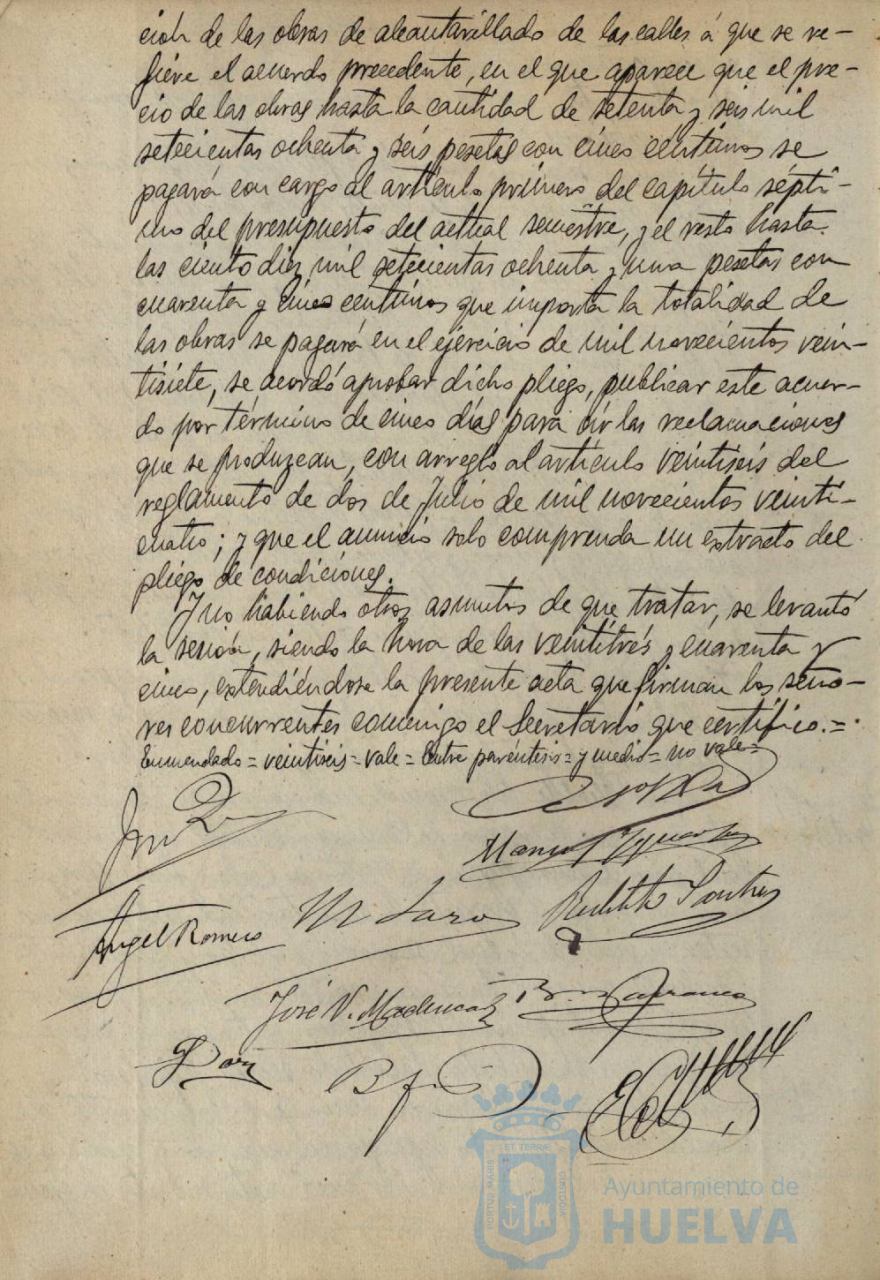 ción de las obras de alcantarillado de las calles á que se re-
fiere el acuerdo precedente, en el que aparece que el pre-
cio de las obras hasta la cantidad de setenta y seis mil
setecientas ochenta y seis pesetas con cinco centimos se
pagará con cargo al artículo primero del capítulo sépti-
mo del presupuesto del actual semestre, y el resto hasta
las ciento diez mil setecientas ochenta y una pesetas con
cuarenta y cinco centimos que importa la totalidad de
las obras se pagará en el ejercicio de mil novecientos vein-
tisiete, se acordó aprobar dicho pliego, publicar este acuer-
do por término de cinco días para oir las reclamaciones
que se produzcan, con arreglo al artículo veintiseis del
reglamento de dos de Julio de mil novecientos veinti-
cuatro; y que el anuncio solo comprenda un extracto del
pliego de condiciones.
Y no habiendo otros asuntos de que tratar, se levantó
la sesión, siendo la hora de las veintitrés y cuarenta y
cinco, extendiéndose la presente acta que firman los seño-
res concurrentes conmigo el Secretario que certifico.=
Enmendado = veintiseis = vale = Entre paréntesis = y medio = no vale =
Angel Romero
José V. Machuca
ET TERRE
PORTUS MARIS
CUSTODIA
Ayuntamiento de
HUELVA